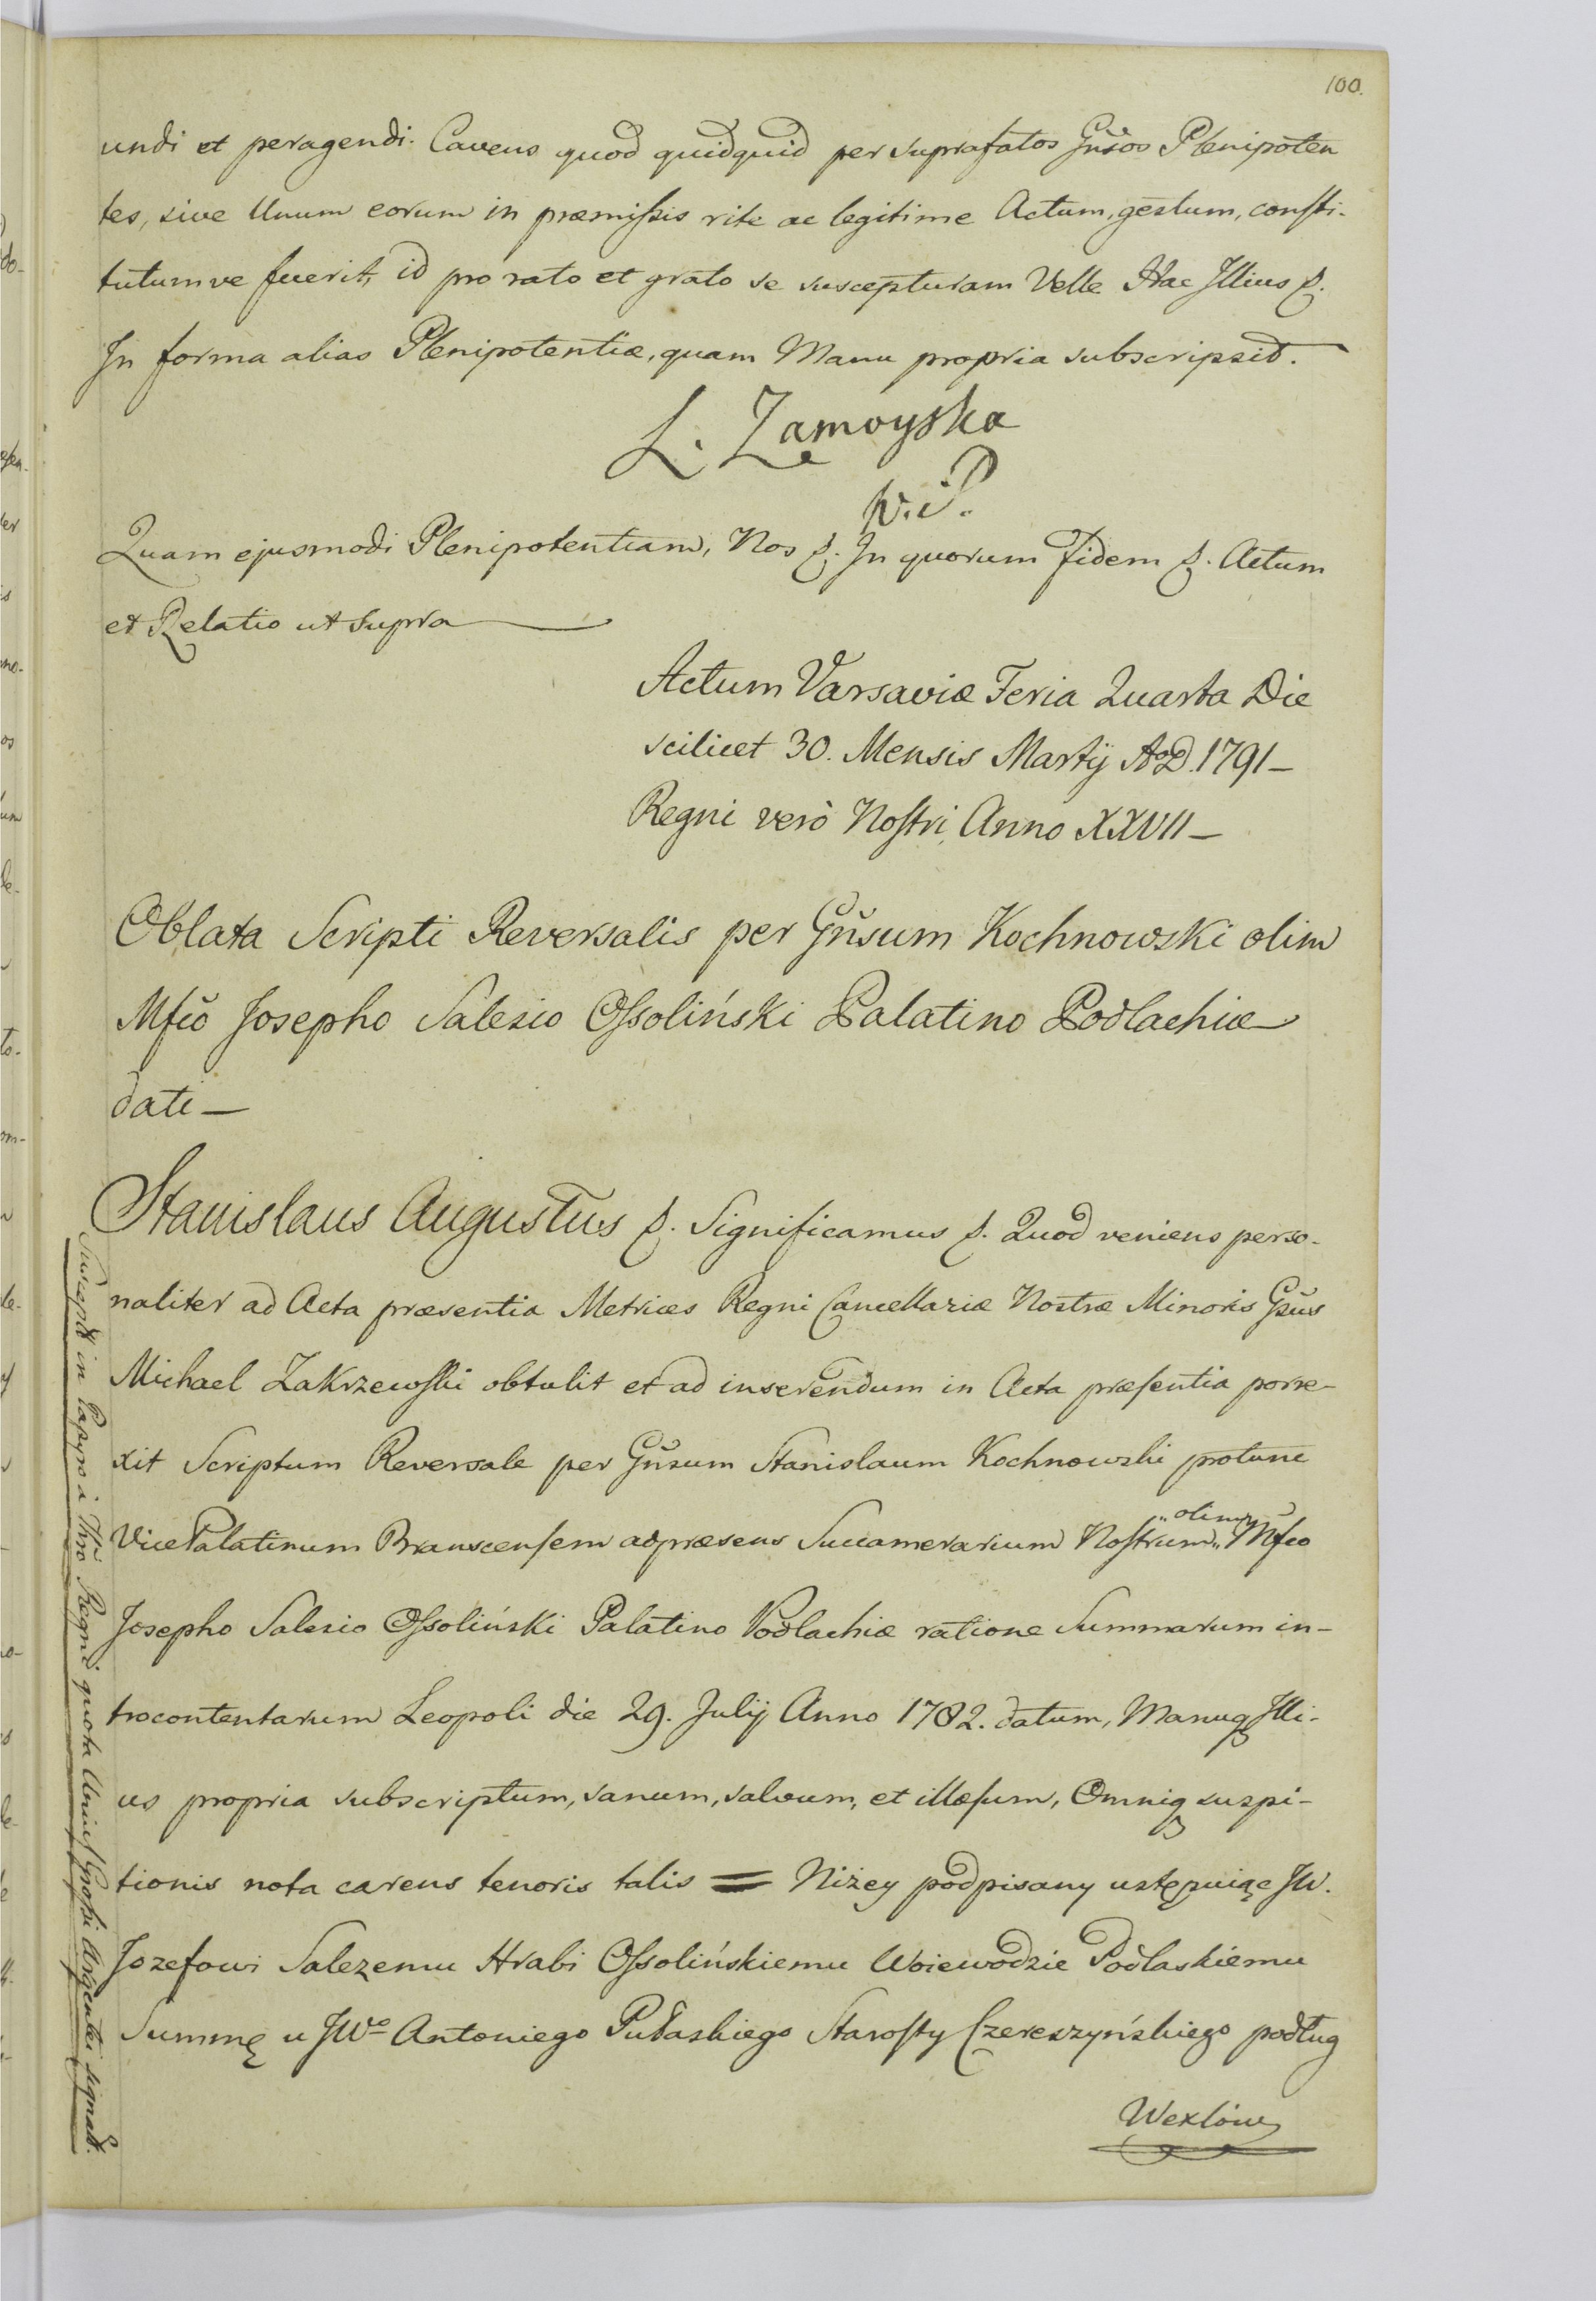 100.
undi et peragendi. Cavens quod quidquid per suprafatos Gnsos Plenipoten
tes, sive Unum eorum in præmiſsis rite ac legitime Actum, gestum, conſti-
tutumve fuerit, id pro rato et grato se suscepturam Velle Hac Jllius &.
Jn forma alias Plenipotentiæ, quam Manu propria subscripsit.
L. Zamoyska
Quam ejusmodi Plenipotentiam, Nos &. Jn quorum fidem &. Actum
et Relatio ut supra
Actum Varsaviæ Feria Quarta Die
scilicet 30. Mensis Martij AoD. 1791 —
Regni verò Noſtri Anno XXVII —
Oblata Scripti Reversalis per Gnsum Kochnowski olim
Mfco Josepho Salesio Oſsoliński Palatino Podlachiæ
dati —
Stanislaus Augustus &. Significamus &. Quod veniens perso-
naliter ad Acta præsentia Metrices Regni Cancellariæ Nostræ Minoris Gsus
Michael Zakrzewſki obtulit et ad inserendum in Acta præſentia porre-
xit Scriptum Reversale per Gnsum Stanislaum Kochnowski protunc
VicePalatinum Branscenſem adpræsens Succamerarium Noſtrum „olim„ Mfco
Josepho Salesio Oſsoliński Palatino Podlachiæ ratione Summarum in-
trocontentarum Leopoli die 29. Julij Anno 1782. datum, Manuq Jlli-
us propria subscriptum, sanum, salvum, et illæſum, Omniq suspi-
tionis nota carens tenoris talis = Niżey podpisany ustępuiąc JW.
Jozefowi Salezemu Hrabi Oſsolińskiemu Woiewodzie Podlaskiemu
Summę u JWo Antoniego Pułaskiego Staroſty Czereszyńskiego podług
Wexlów
Suscept in Papyro à Thro Regni quota Unius Groſsi Argentei signat.